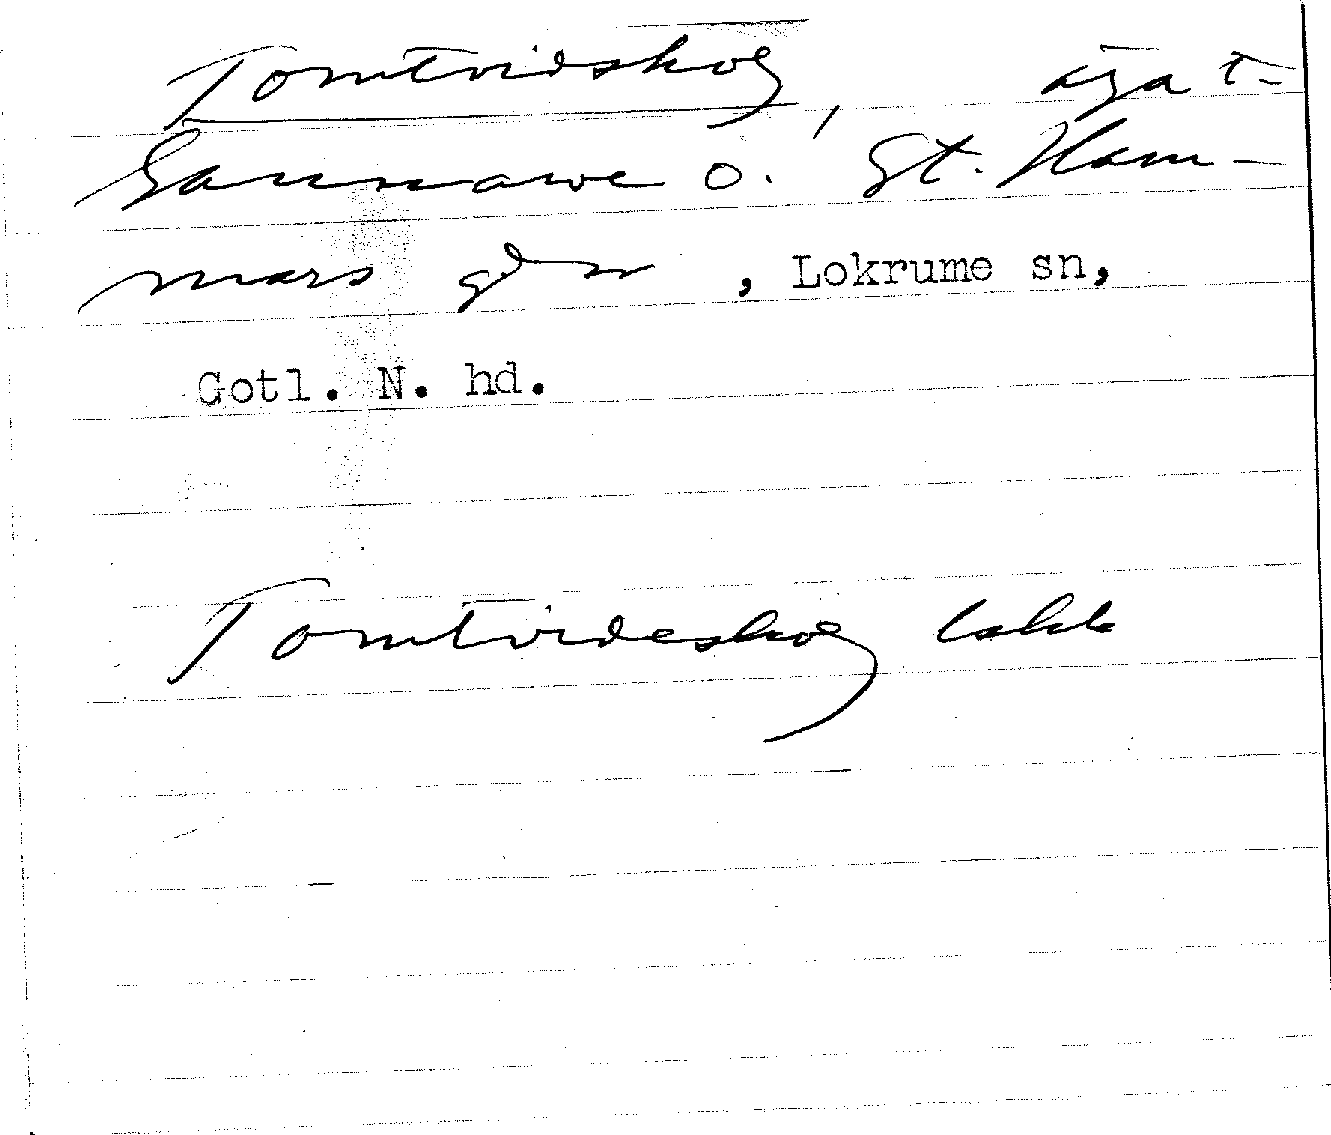 Tomtvidskog, äga t.
Gannarve o. St. Ham-
mars gdr , Lokrume sn,
Gotl. N. hd.
Tomtvideskog